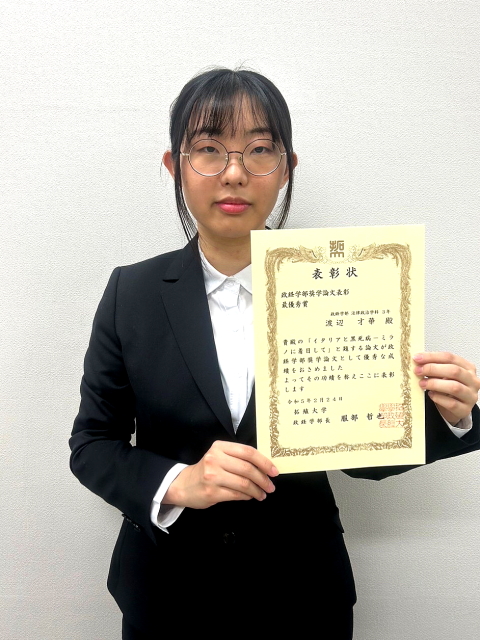 拓
表彰状
政経学部奨学論文表彰
最優秀賞
政経学部 法律政治学科 3年
渡辺 才華 殿
貴殿の「イタリアと黒死病―ミラ
ノに着目して」と題する論文が政
経学部奨学論文として優秀な成
績をおさめました
よってその功績を称えここに表彰
します
令和5年2月24日
拓殖大学
政経学部長 服部 哲也